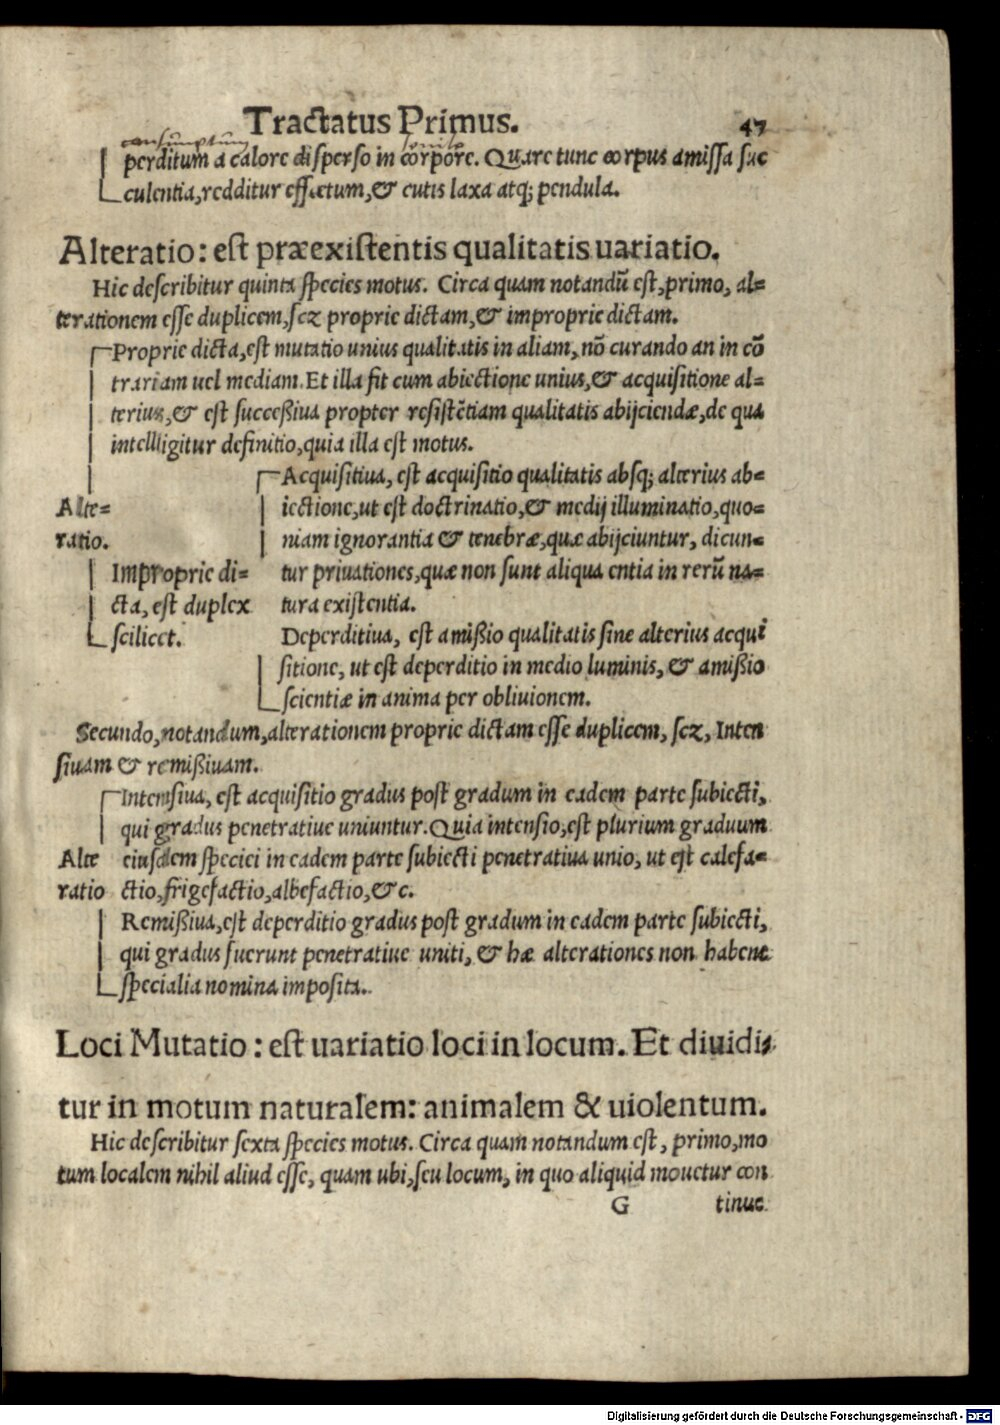 Tractatus Primus. 47
consumptum
perditum a calore disperso in corpore. Quare tunc corpus amissa suc
culentia, redditur effœtum, & cutis laxa atq; pendula.
Alteratio: est præexistentis qualitatis uariatio.
Hic describitur quinta species motus. Circa quam notandū est, primo, al=
terationem esse duplicem, scz proprie dictam, & improprie dictam.
Proprie dicta, est mutatio unius qualitatis in aliam, nō curando an in cō
trariam uel mediam. Et illa fit cum abiectione unius, & acquisitione al=
terius, & est successiua propter resistētiam qualitatis abijciendæ, de qua
intelligitur definitio, quia illa est motus.
Alte=
ratio.
Improprie di=
cta, est duplex
scilicet.
Acquisitiua, est acquisitio qualitatis absq; alterius ab=
iectione, ut est doctrinatio, & medij illuminatio, quo=
niam ignorantia & tenebræ, quæ abijciuntur, dicun=
tur priuationes, quæ non sunt aliqua entia in rerū na=
tura existentia.
Deperditiua, est amissio qualitatis sine alterius acqui
sitione, ut est deperditio in medio luminis, & amissio
scientiæ in anima per obliuionem.
Secundo, notandum, alterationem proprie dictam esse duplicem, scz, Inten
siuam & remissiuam.
Alte
ratio
Intensiua, est acquisitio gradus post gradum in eadem parte subiecti,
qui gradus penetratiue uniuntur. Quia intensio, est plurium graduum
eiusdem speciei in eadem parte subiecti penetratiua unio, ut est calefa=
ctio, frigefactio, albefactio, &c.
Remissiua, est deperditio gradus post gradum in eadem parte subiecti,
qui gradus fuerunt penetratiue uniti, & hæ alterationes non habent
specialia nomina imposita.
Loci Mutatio: est uariatio loci in locum. Et diuidi=
tur in motum naturalem: animalem & uiolentum.
Hic describitur sexta species motus. Circa quam notandum est, primo, mo
tum localem nihil aliud esse, quam ubi, seu locum, in quo aliquid mouetur con
G tinue
Digitalisierung gefördert durch die Deutsche Forschungsgemeinschaft - DFG